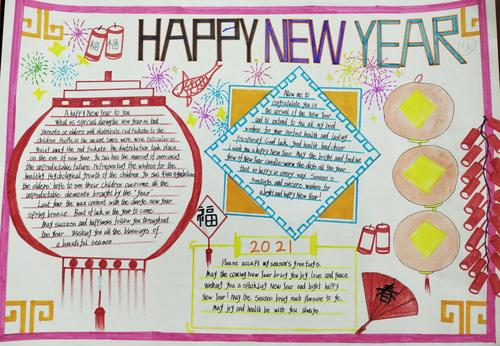 HAPPY NEW YEAR
福 福
A happy New Year to you
What is special during the new year is that
parents or elders will distribute red packets to the
children. People in the ancient times were more particular
about the red packets. The distribution take place
on the eve of new year. Ya Sui has the moral of
the unpredictable future. It represents the wishes for the
healthy psychological growth of the children. Ya sui
the elders' gifts to see their children overcome all the
unpredictable elements brought by the "Year"
the wax contact with the
spring breeze. Best of luck in the year to come.
May success and happiness follow you throughout
the year. Wishing you all the blessings of
a beautiful season
Allow me to
congratulate you on
the arrival of the New Year
and to extend to you all my best
wishes for your perfect health and lasting
prosperity! Good luck, good health, good cheer
with the a happy new year. May the bright and festive
glow of New Year candle warm the days all the year
through in happy in every way. Season's
greetings and sincere wishes for
a bright and happy New Year!
福
2021
Please accept my season's greetings.
May the coming New Year bring you joy, love and peace
Wishing you a sparkling New Year and bright happy
New Year! May the season bring much pleasure to you.
May joy and health be with you always
春